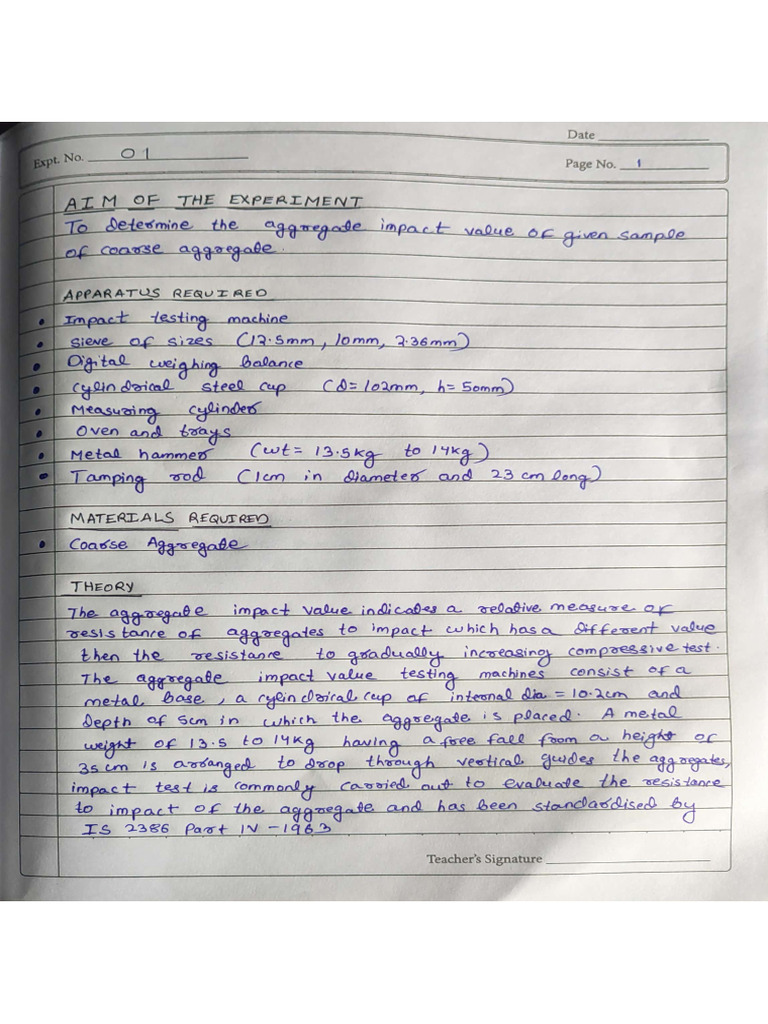 Date
Expt. No. 01
Page No. 1
AIM OF THE EXPERIMENT
To determine the aggregate impact value of given sample
of coarse aggregate.
APPARATUS REQUIRED
• Impact testing machine
• Sieve of sizes (12.5mm, 10mm, 2.36mm)
• Digital weighing balance
• Cylindrical steel cup (d=102mm, h=50mm)
• Measuring cylinder
• Oven and trays
• Metal hammer (wt= 13.5kg to 14kg)
• Tamping rod (1cm in diameter and 23 cm long)
MATERIALS REQUIRED
• Coarse Aggregate
THEORY
The aggregate impact value indicates a relative measure of
resistance of aggregates to impact which has a different value
then the resistance to gradually increasing compressive test.
The aggregate impact value testing machines consist of a
metal base, a cylindrical cup of internal dia = 10.2cm and
depth of 5cm in which the aggregate is placed. A metal
weight of 13.5 to 14kg having a free fall from a height of
35cm is arranged to drop through vertical guides the aggregates,
impact test is commonly carried out to evaluate the resistance
to impact of the aggregate and has been standardised by
IS 2386 Part IV - 1963
Teacher's Signature